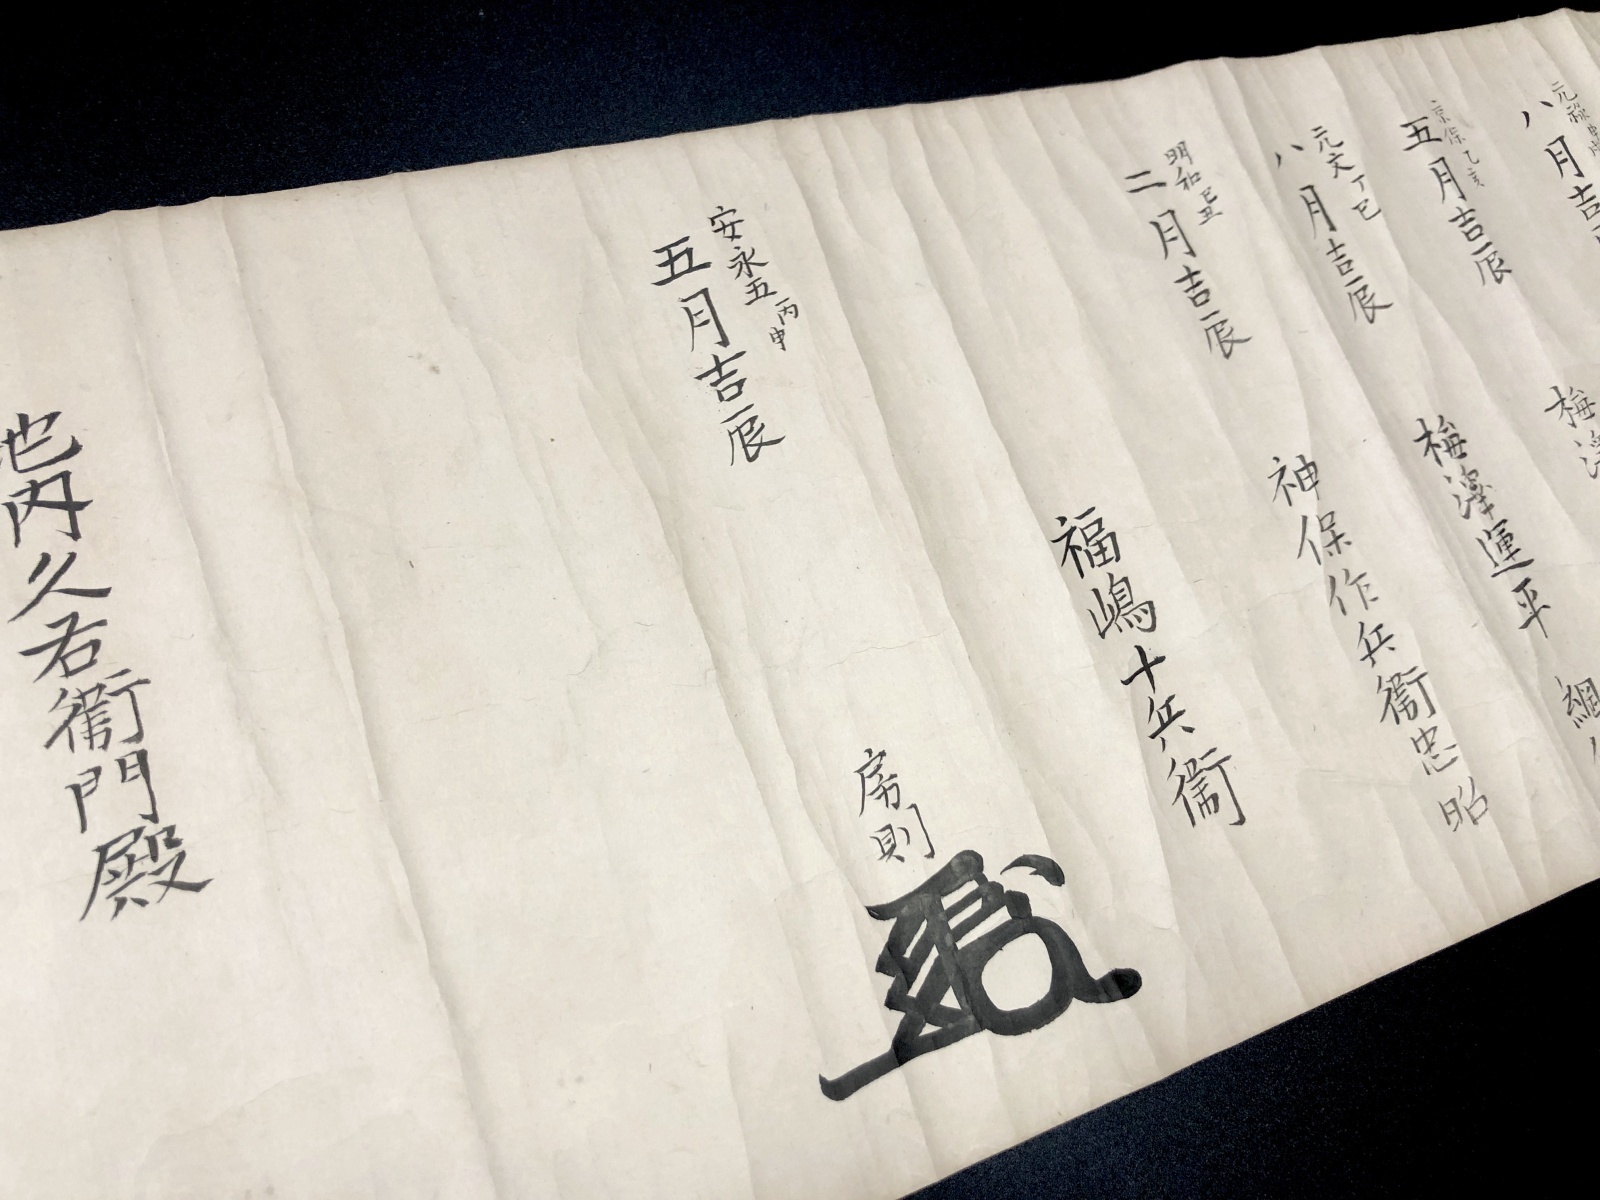 元禄
八月吉
梅澤
綱
享保乙亥
五月吉辰
梅澤運平
元文丁巳
八月吉辰
神保作兵衛忠昭
明和己丑
二月吉辰
福嶋十兵衛
房則
安永五丙申
五月吉辰
池内久右衛門殿